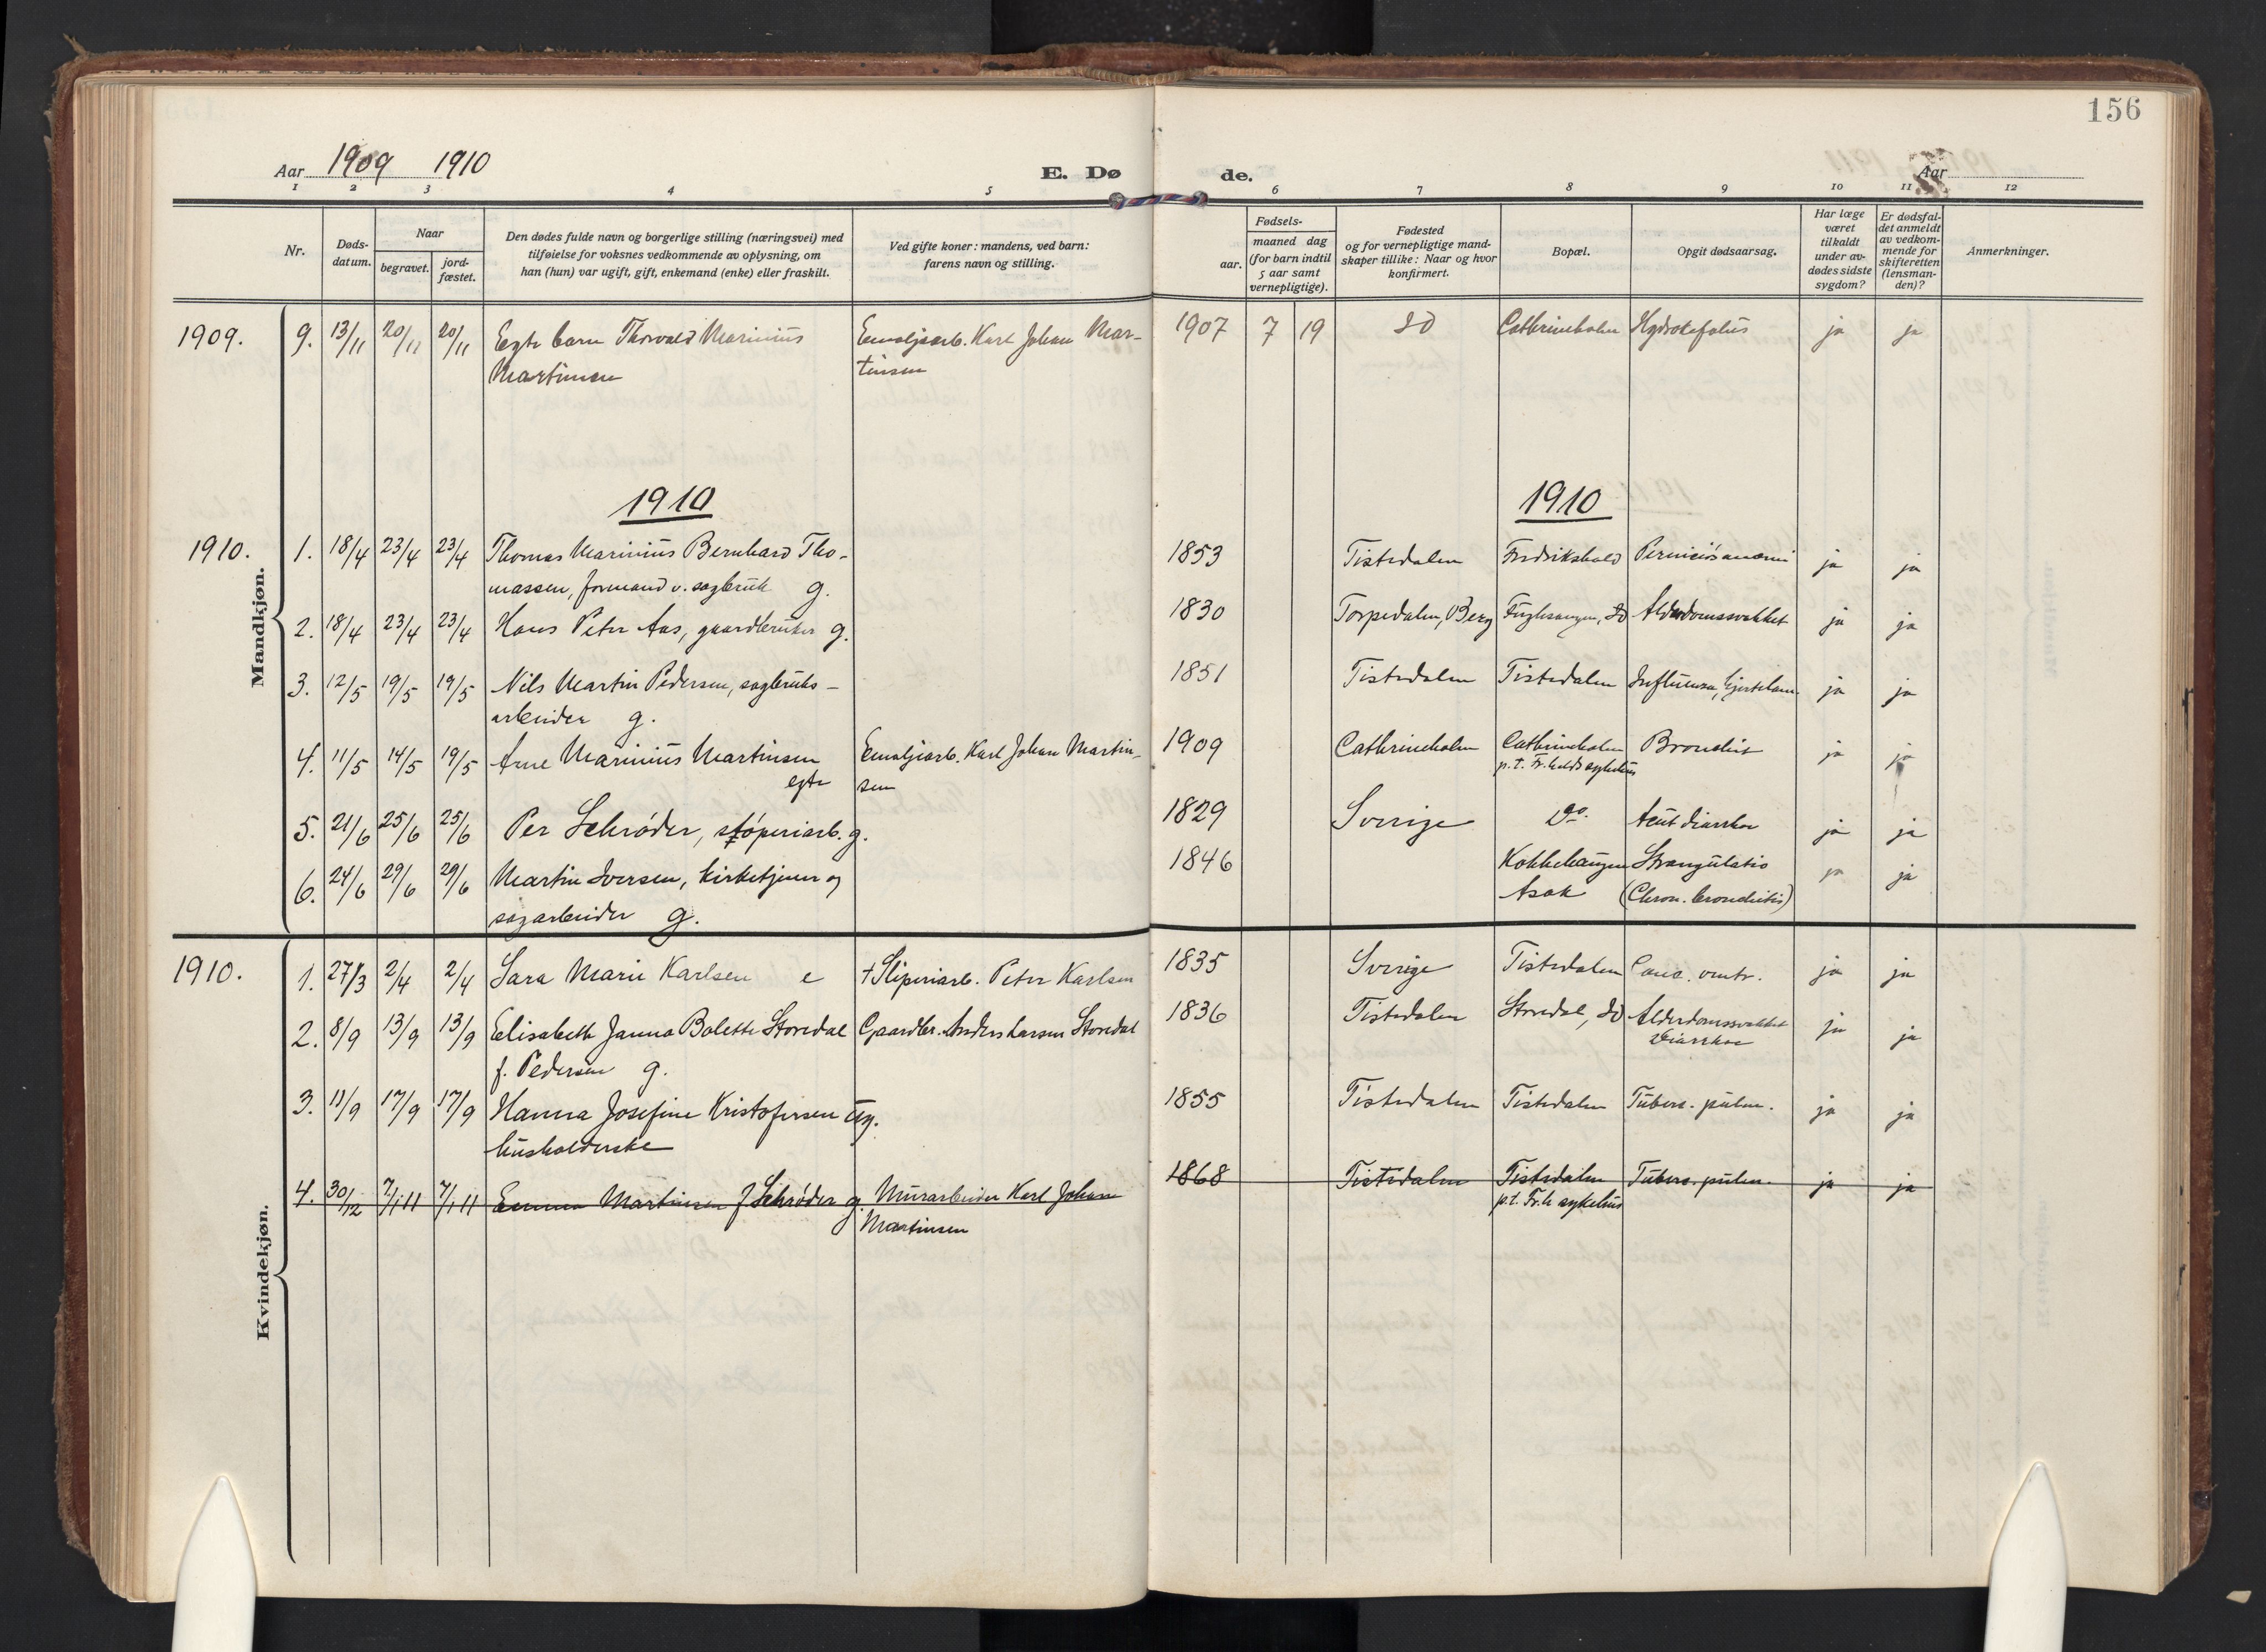 156
Aar 1909 1910
E. Dø
de.
Aar
1 2 3 4 5 6 7 8 9 10 11 12
Nr.
Døds-
datum.
Naar
begravet.
jord-
fæstet.
Den dødes fulde navn og borgerlige stilling (næringsvei) med
tilføielse for voksnes vedkommende av oplysning, om
han (hun) var ugift, gift, enkemand (enke) eller fraskilt.
Ved gifte koner: mandens, ved barn:
farens navn og stilling.
Fødsels-
aar.
maaned dag
(for barn indtil
5 aar samt
vernepligtige).
Fødested
og for vernepligtige mand-
skaper tillike: Naar og hvor
konfirmert.
Bopæl.
Opgit dødsaarsag.
Har læge
været
tilkaldt
under av-
dødes sidste
sygdom?
Er dødsfal-
det anmeldt
av vedkom-
mende for
skifteretten
(lensman-
den)?
Anmerkninger.
1909. 9. 13/11 20/11 20/11 Egte barn Thorvald Marinius Emaljearb. Karl Johan Mar- 1907 7 19 Id Cathrineholm Hydrokefalus ja ja
Martinsen tinsen
1910 1910
Mandkjøn.
1910. 1. 18/4 23/4 23/4 Thomas Marinius Bernhard Tho- 1853 Tistedalen Fredrikshald Perniciøs anæmi ja ja
massen, formand v. sagbruk g.
2. 18/4 23/4 23/4 Hans Peter Aas, gaardbruker g. 1830 Torpedalen, Berg Id Alderdomssvakhet ja ja
3. 12/5 19/5 19/5 Nils Martin Pedersen, sagbruks- 1851 Tistedalen Tistedalen Influensa, ja ja
arbeider g.
4. 11/5 14/5 19/5 Arne Marinius Martinsen Emaljearb. Karl Johan Martin- 1909 Cathrineholm Cathrineholm Bronchit ja ja
egte sen p.t. Fr.halds sykehus
5. 21/6 25/6 25/6 Per Schrøder, støperiarb. g. 1829 Sverige Do. Acut diarrhoe ja ja
6. 24/6 29/6 29/6 Martin Iversen, kirketjener og 1846 Kokkehaugen Strangulatio ja ja
sagarbeider g. Asak (Chron. bronchitis)
Kvindekjøn.
1910. 1. 27/3 2/4 2/4 Sara Marie Karlsen e † Sliperiarb. Peter Karlsen 1835 Sverige Tistedalen Canc. ventr. ja ja
2. 8/9 13/9 13/9 Elisabeth Janna Bolette Storedal Gaardbr. Anders Larsen Storedal 1836 Tistedalen Storedal, Id Alderdomssvakhet ja ja
f. Pedersen g. Diarrhoe
3. 11/9 17/9 17/9 Hanna Josefine Kristofersen ug. 1855 Tistedalen Tistedalen Tuberc. pulm. ja ja
husholderske
4. 30/12 7/1 11 7/1 11 Emma Martinsen f. Schrøder g. Murarbeider Karl Johan 1868 Tistedalen Tistedalen Tuberc. pulm. ja ja
Martinsen p.t. Fr.h sykehus